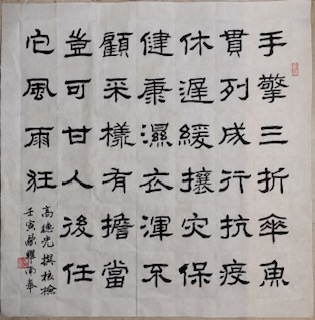 手擎三折傘魚
貫列成行抗疫
休遲緩攘灾保
健康濕衣渾不
顧采樣有擔當
豈可甘人後任
它風雨狂
高德光撰核檢
壬寅歲耀南奉